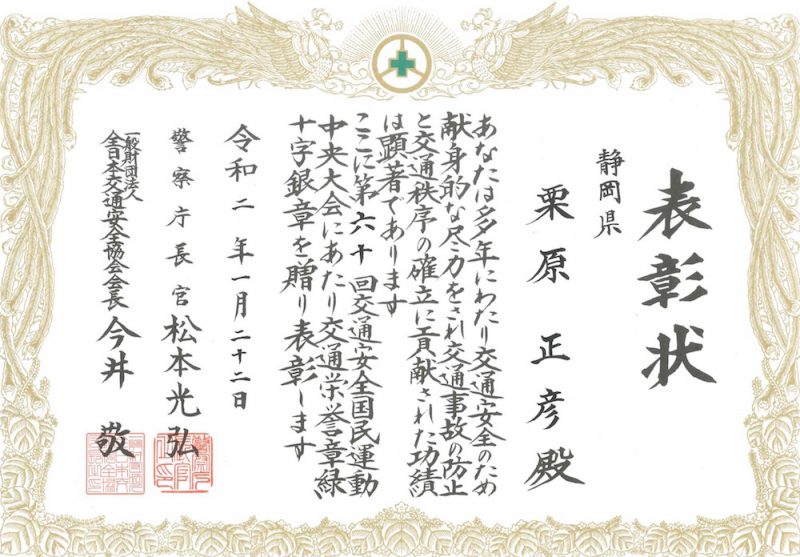 表彰状
静岡県
栗原正彦殿
あなたは多年にわたり交通安全のため
献身的な尽力をされ交通事故の防止
と交通秩序の確立に貢献された功績
は顕著であります
ここに第六十回交通安全国民運動
中央大会にあたり交通栄誉章緑
十字銀章を贈り表彰します
令和二年一月二十二日
警察庁長官 松本光弘
一般財団法人
全日本交通安全協会会長 今井敬